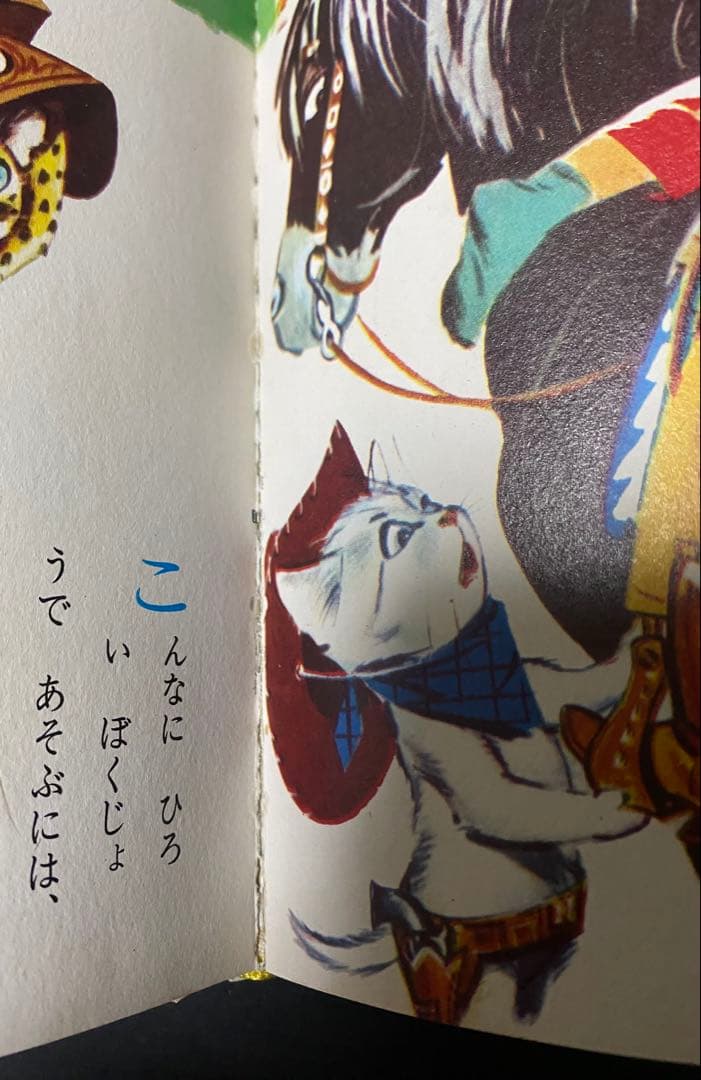 こんなに ひろ
い ぼくじょ
うで あそぶには、